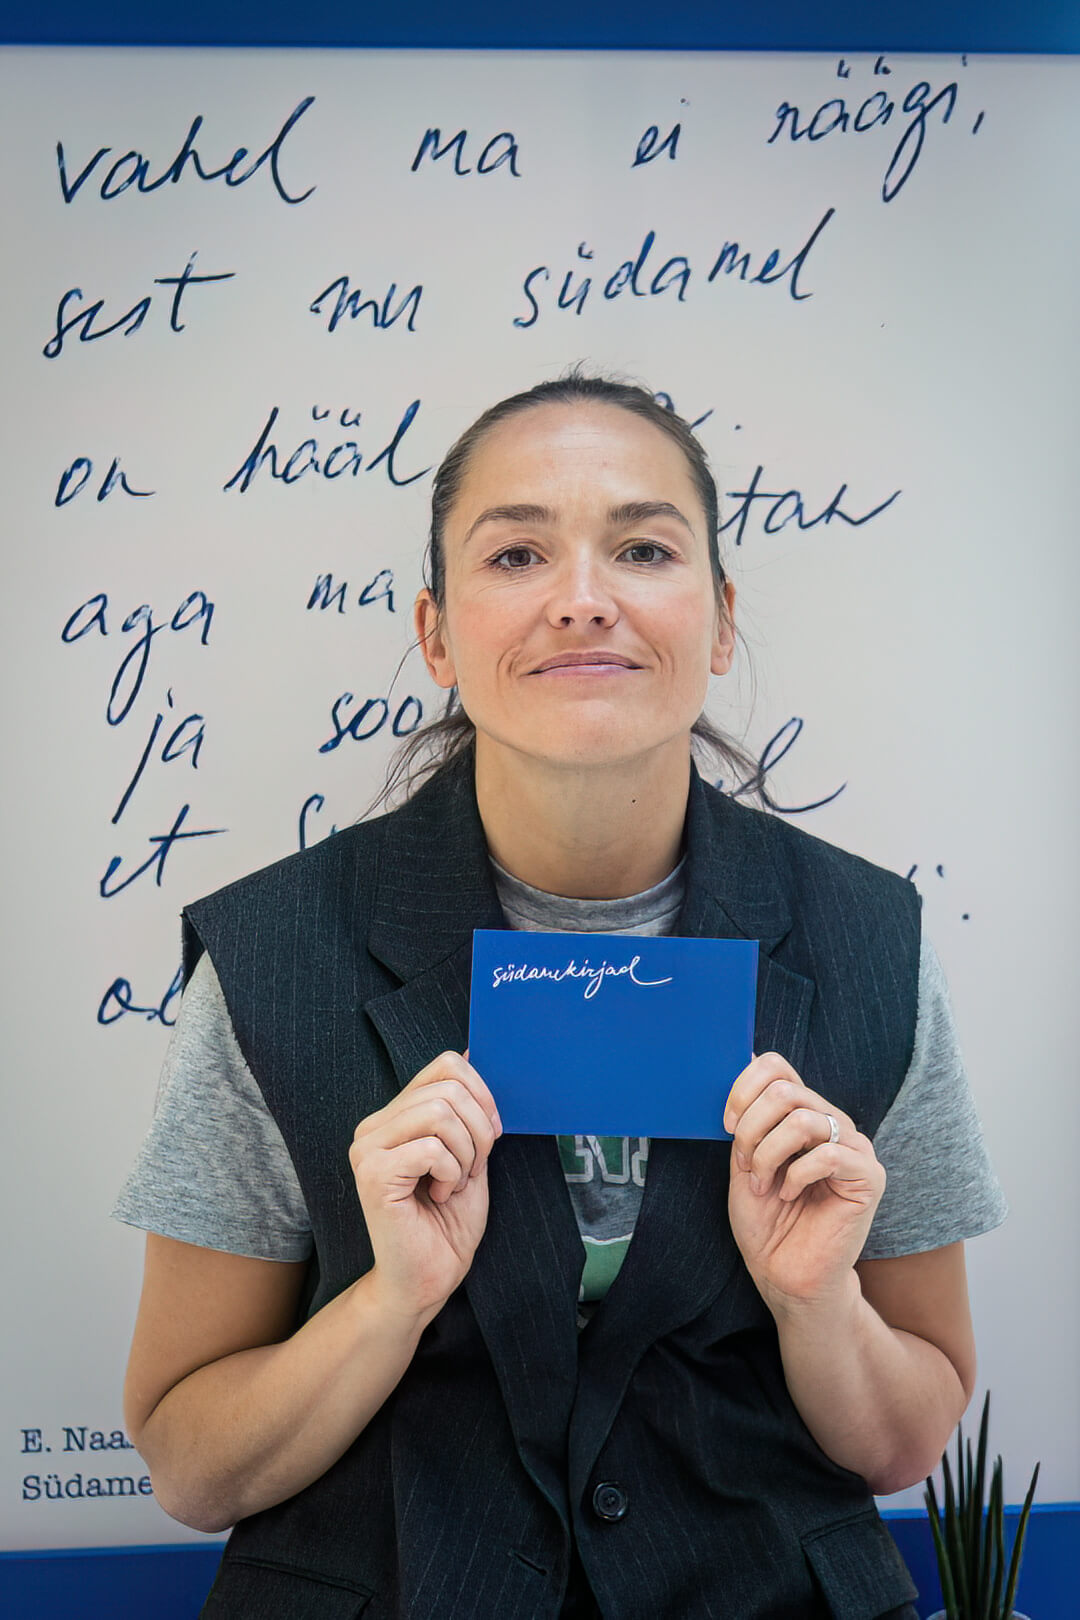 vahel ma ei räägi,
sest mu südamel
on hääl
aga ma
ja
et
südamekirjad
E. Naa
Südame